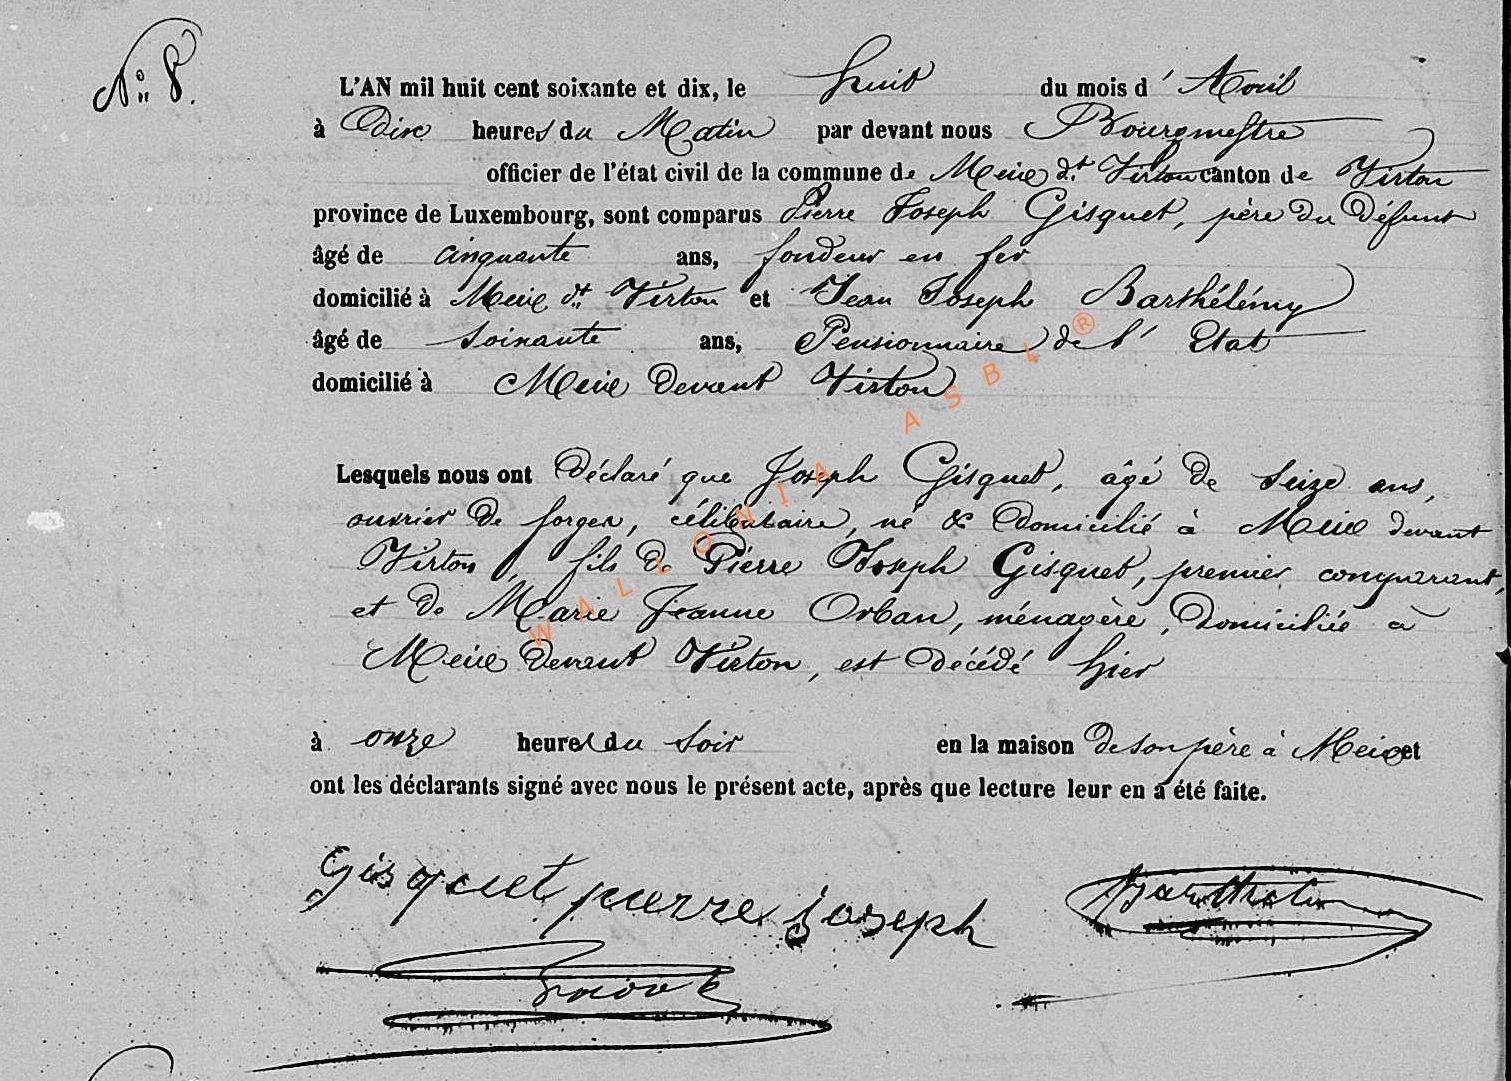 N° 8.
L'AN mil huit cent soixante et dix, le huit du mois d' Avril
à Dix heures du Matin par devant nous Bourgmestre
officier de l'état civil de la commune de Meix dt Virton canton de Virton
province de Luxembourg, sont comparus Pierre Joseph Gisquet, père du défunt
âgé de cinquante ans, fondeur en fer
domicilié à Meix dt Virton et Jean Joseph Barthélémy
âgé de soixante ans, Pensionnaire de l' Etat
domicilié à Meix devant Virton
Lesquels nous ont Déclaré que Joseph Gisquet, âgé de Seize ans,
ouvrier de forges, célibataire, né & Domicilié à Meix devant
Virton, fils de Pierre Joseph Gisquet, premier comparant,
et de Marie Jeanne Orban, ménagère, domiciliée à
Meix devant Virton, est Décédé hier
à onze heures du Soir en la maison de son père à Meix et
ont les déclarants signé avec nous le présent acte, après que lecture leur en a été faite.
Gisquet pierre joseph
WALLONIA ASBL®